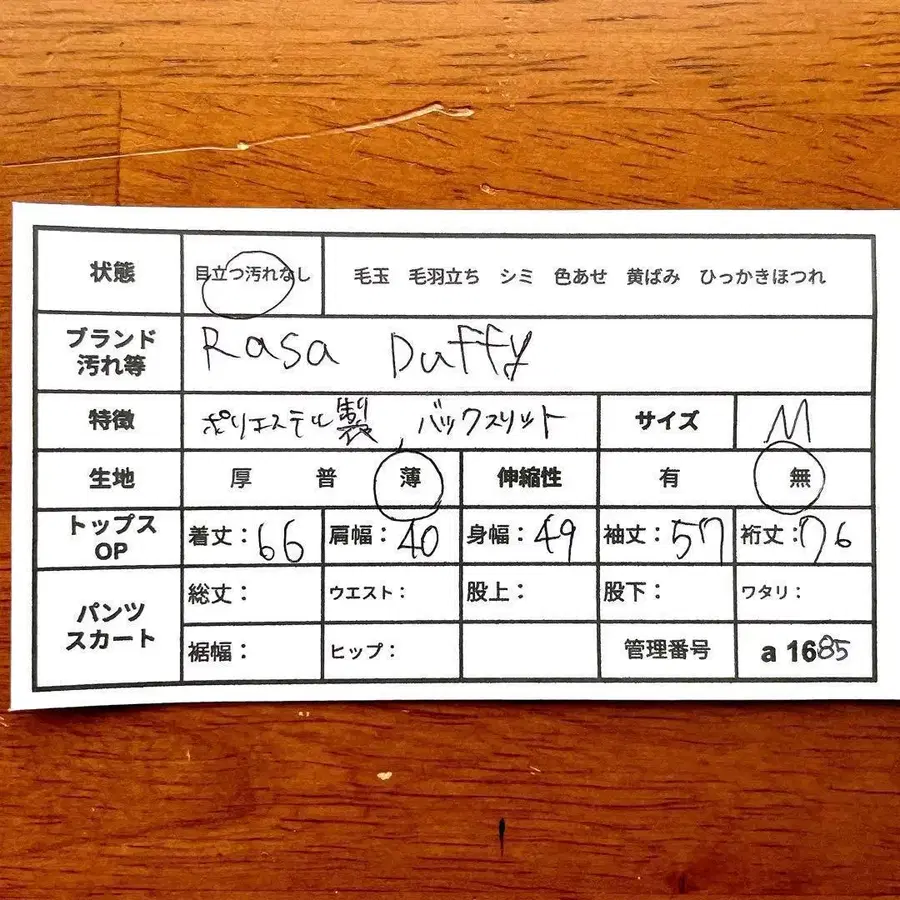 状態 目立つ汚れなし 毛玉 毛羽立ち シミ 色あせ 黄ばみ ひっかきほつれ
ブランド Rasa Duffy
汚れ等
特徴 ポリエステル製、バックスリット サイズ M
生地 厚 普 薄 伸縮性 有 無
トップス 着丈：66 肩幅：40 身幅：49 袖丈：57 裄丈：76
OP
パンツ 総丈： ウエスト： 股上： 股下： ワタリ：
スカート 裾幅： ヒップ： 管理番号 a 1685